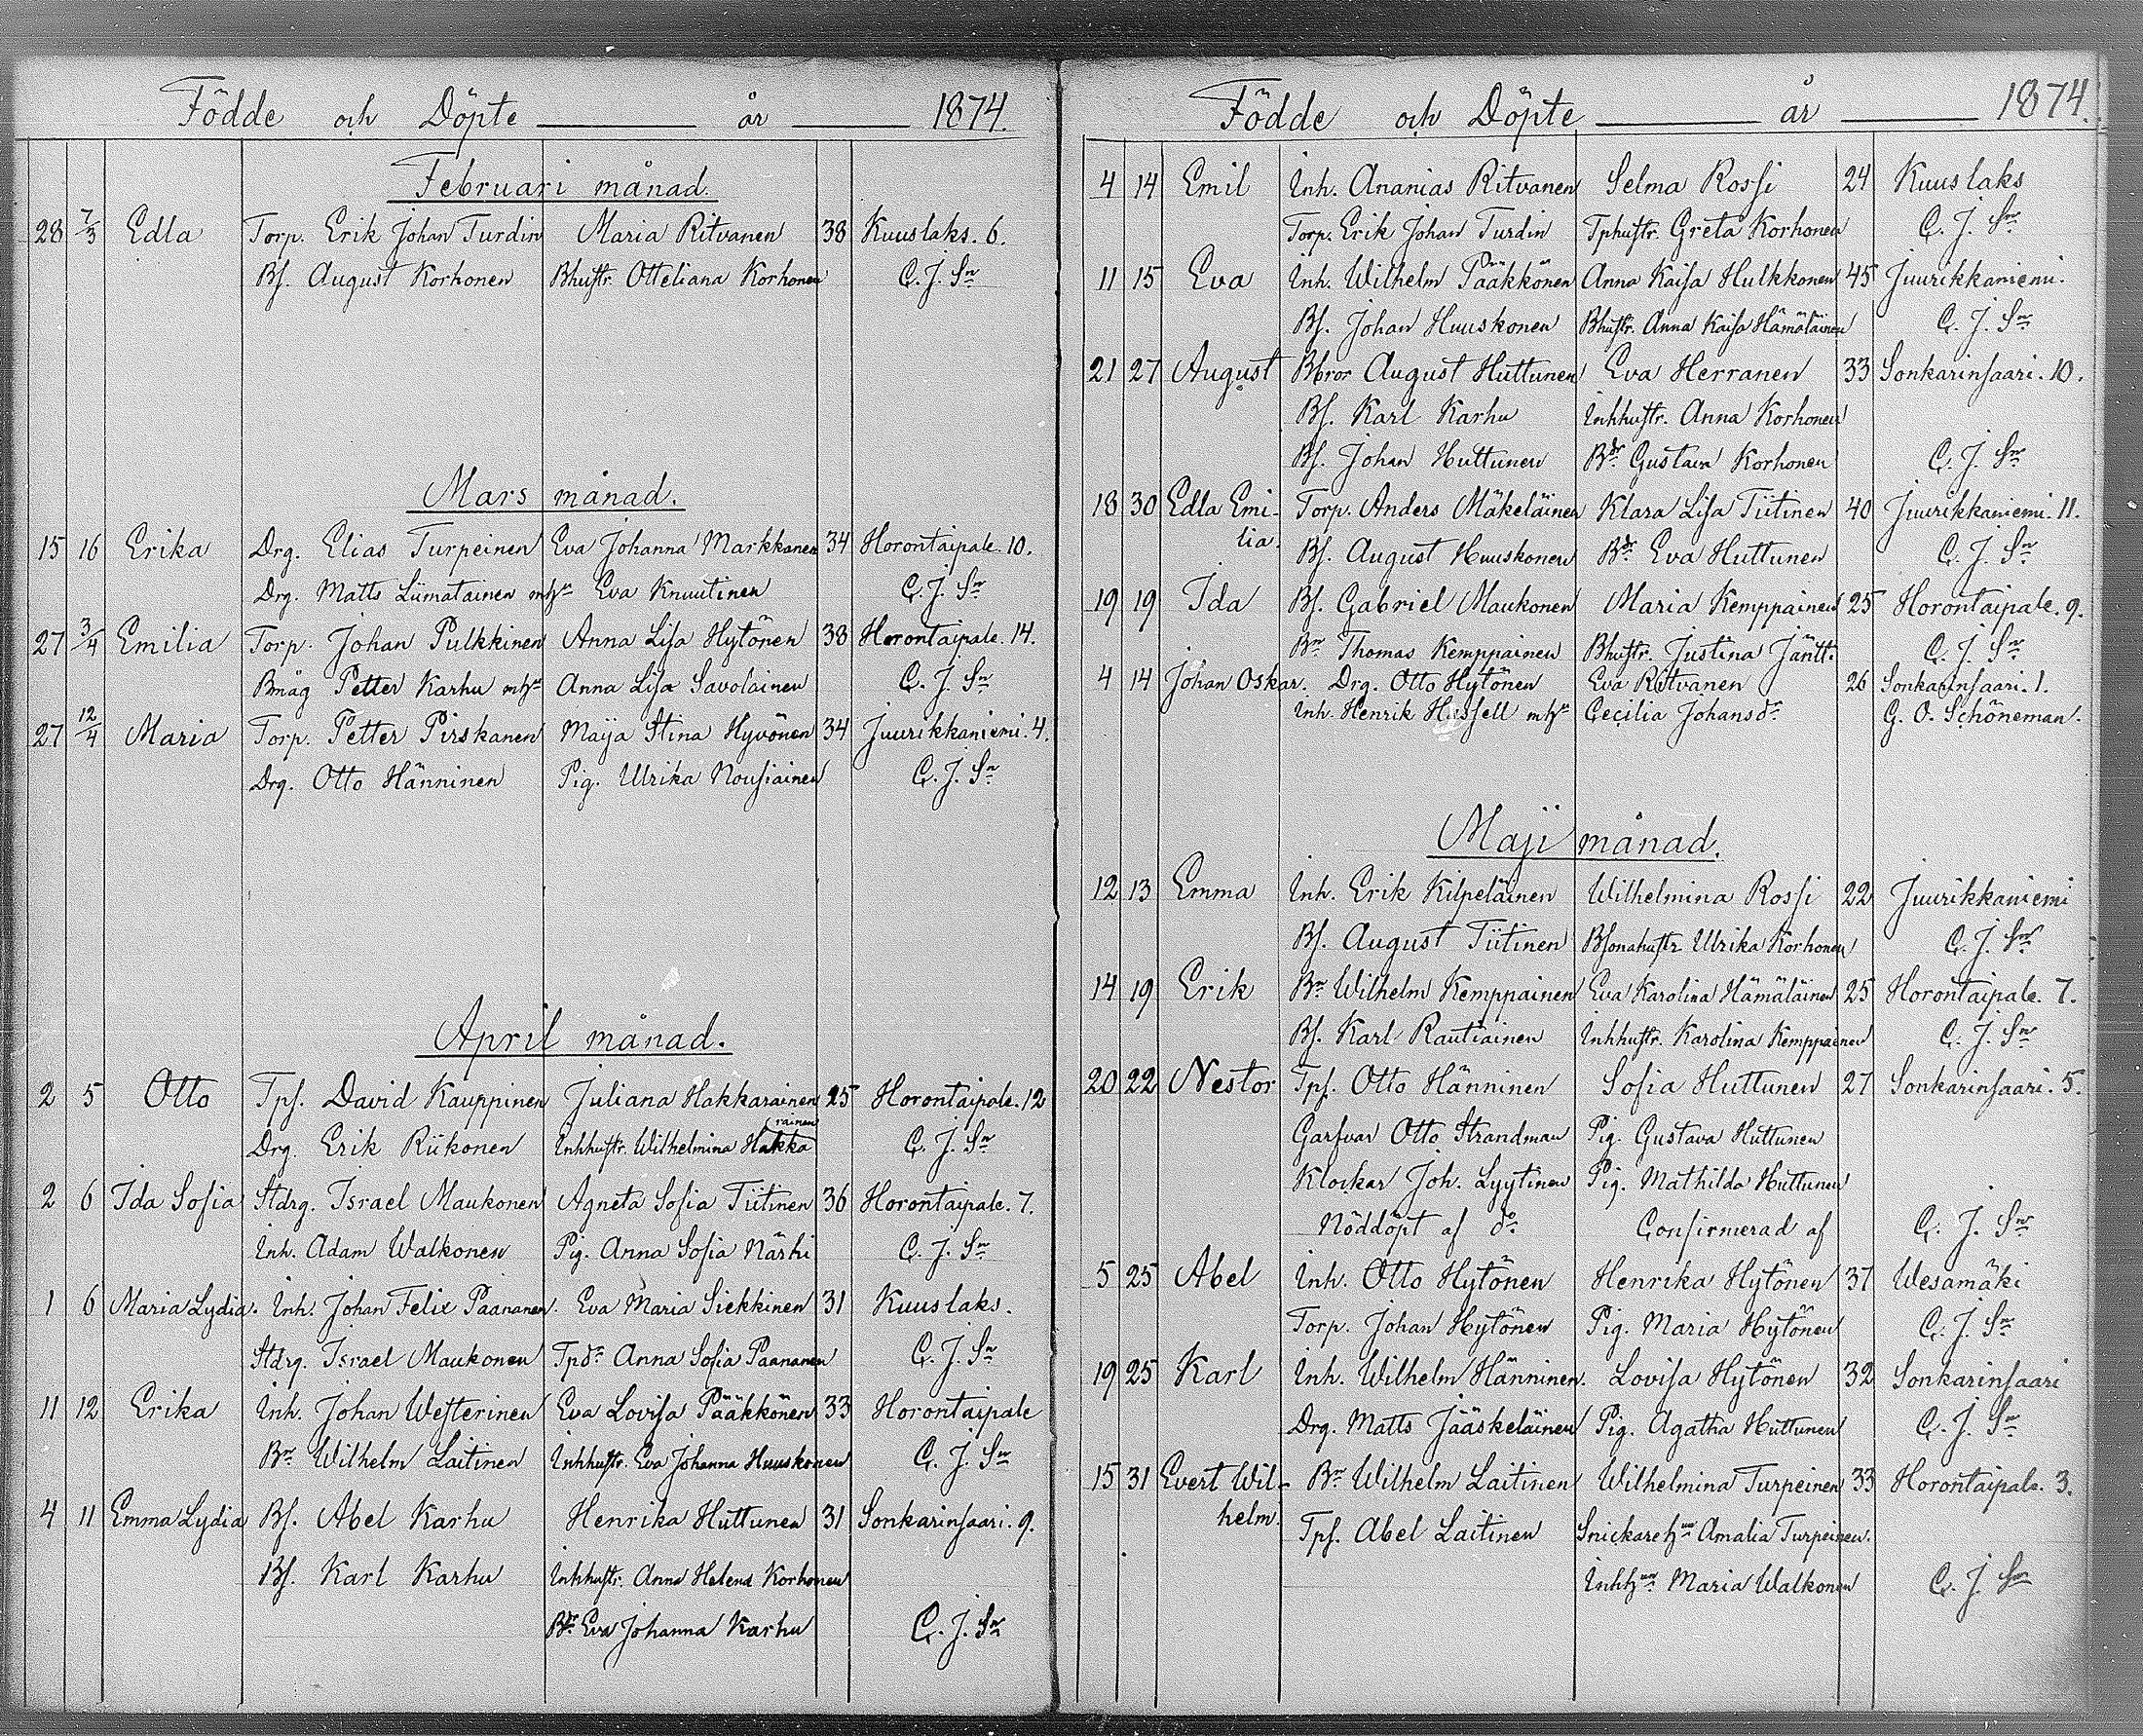 Födde och Döpte år 1874.
Februari månad.
28 7/3 Edla Torp. Erik Johan Turdin Maria Ritvanen 38 Kuuslaks. 6.
Bf. August Korhonen Bhustr. Otteliana Korhonen C. J. Sn
Mars månad.
15 16 Erika Drg. Elias Turpeinen Eva Johanna Markkanen 34 Horontaipale. 10.
Drg. Matts Liimatainen mhu Eva Knuutinen C. J. Sn
27 3/4 Emilia Torp. Johan Pulkkinen Anna Lisa Hytönen 38 Horontaipale. 14.
Bmåg Petter Karhu mhu Anna Lisa Savolainen C. J. Sn
27 12/4 Maria Torp. Petter Pirskanen Maija Stina Hyvönen 34 Juurikkaniemi. 4.
Drg. Otto Hänninen Pig. Ulrika Nousiainen C. J. Sn
April månad.
2 5 Otto Tpf. David Kauppinen Juliana Hakkarainen 25 Horontaipale. 12
Drg. Erik Riikonen Inhhustr. Wilhelmina Hakka rainen C. J. Sn
2 6 Ida Sofia Stdrg. Israel Maukonen Agneta Sofia Tiitinen 36 Horontaipale. 7.
Inh. Adam Walkonen Pig. Anna Sofia Närhi C. J. Sn
1 6 Maria Lydia. Inh. Johan Felix Paananen. Eva Maria Siekkinen 31 Kuuslaks.
Stdrg. Israel Maukonen Tpdr Anna Sofia Paananen C. J. Sn
11 12 Erika Inh. Johan Westerinen Eva Lovisa Pääkkönen 33 Horontaipale
Bn Wilhelm Laitinen Inhhustr. Eva Johanna Huuskonen C. J. Sn
4 11 Emma Lydia Bf. Abel Karhu Henrika Huttunen 31 Sonkarinsaari. 9.
Bf. Karl Karhu Inhhustr. Anna Helena Korhonen
Bdr Eva Johanna Karhu C. J. Sn
Födde och Döpte år 1874.
4 14 Emil Inh. Ananias Ritvanen Selma Rossi 24 Kuuslaks
Torp. Erik Johan Turdin Tphustr. Greta Korhonen C. J. Sn
11 15 Eva Inh. Wilhelm Pääkkönen Anna Kaisa Hulkkonen 45 Juurikkaniemi.
Bf. Johan Huuskonen Bhustr. Anna Kaisa Hämäläinen C. J. Sn
21 27 August Bbror August Huttunen Eva Herranen 33 Sonkarinsaari. 10.
Bf. Karl Karhu Inhhustr. Anna Korhonen
Bf. Johan Huttunen Bdr Gustava Korhonen C. J. Sn
18 30 Edla Emi- Torp. Anders Mäkeläinen Klara Lisa Tiitinen 40 Juurikkaniemi. 11.
lia. Bf. August Huuskonen Bdr Eva Huttunen C. J. Sn
19 19 Ida Bf. Gabriel Maukonen Maria Kemppainen 25 Horontaipale. 9.
Bn Thomas Kemppainen Bhustr. Justina Jäntti C. J. Sn
4 14 Johan Oskar. Drg. Otto Hytönen Eva Ritvanen 26 Sonkarinsaari. 1.
Inh. Henrik Hessell mhu Cecilia Johansdr G. O. Schöneman.
Maji månad.
12 13 Emma Inh. Erik Kilpeläinen Wilhelmina Rossi 22 Juurikkaniemi
Bf. August Tiitinen Bsonahustr Ulrika Korhonen C. J. Sn
14 19 Erik Bn Wilhelm Kemppainen Eva Karolina Hämäläinen 25 Horontaipale. 7.
Bf. Karl Rautiainen Inhhustr. Karolina Kemppainen C. J. Sn
20 22 Nestor Tpf. Otto Hänninen Sofia Huttunen 27 Sonkarinsaari. 5.
Garfvar Otto Strandman Pig. Gustava Huttunen
Klockar Joh. Lyytinen Pig. Mathilda Huttunen
Nöddöpt af do Confirmerad af C. J. Sn
5 25 Abel Inh. Otto Hytönen Henrika Hytönen 37 Wesamäki
Torp. Johan Hytönen Pig. Maria Hytönen C. J. Sn
19 25 Karl Inh. Wilhelm Hänninen. Lovisa Hytönen 32 Sonkarinsaari
Drg. Matts Jääskeläinen Pig. Agatha Huttunen C. J. Sn
15 31 Evert Wil- Bn Wilhelm Laitinen Wilhelmina Turpeinen 33 Horontaipale. 3.
helm. Tpf. Abel Laitinen Snickarehun Amalia Turpeinen.
Inhhun Maria Walkonen C. J. Sn